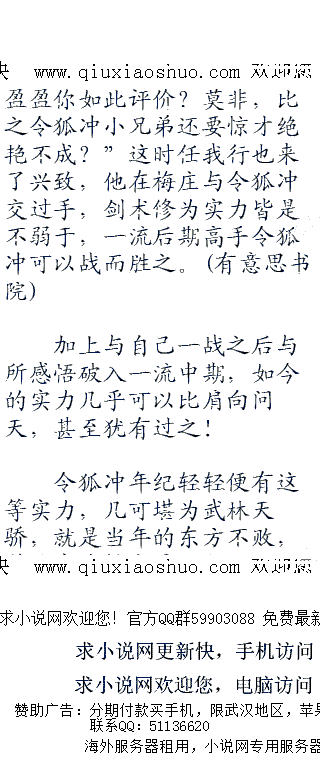 快 www.qiuxiaoshuo.com 欢迎您
盈盈你如此评价？莫非，比
之令狐冲小兄弟还要惊才绝
艳不成？”这时任我行也来
了兴致，他在梅庄与令狐冲
交过手，剑术修为实力皆是
不弱于，一流后期高手令狐
冲可以战而胜之。(有意思书
院)
加上与自己一战之后与
所感悟破入一流中期，如今
的实力几乎可以比肩向问
天，甚至犹有过之！
令狐冲年纪轻轻便有这
等实力，几可堪为武林天
骄，就是当年的东方不败，
快 www.qiuxiaoshuo.com 欢迎您
求小说网欢迎您！官方QQ群59903088 免费最新
求小说网更新快，手机访问
求小说网欢迎您，电脑访问
赞助广告：分期付款买手机，限武汉地区，苹果
联系QQ：51136620
海外服务器租用，小说网专用服务器